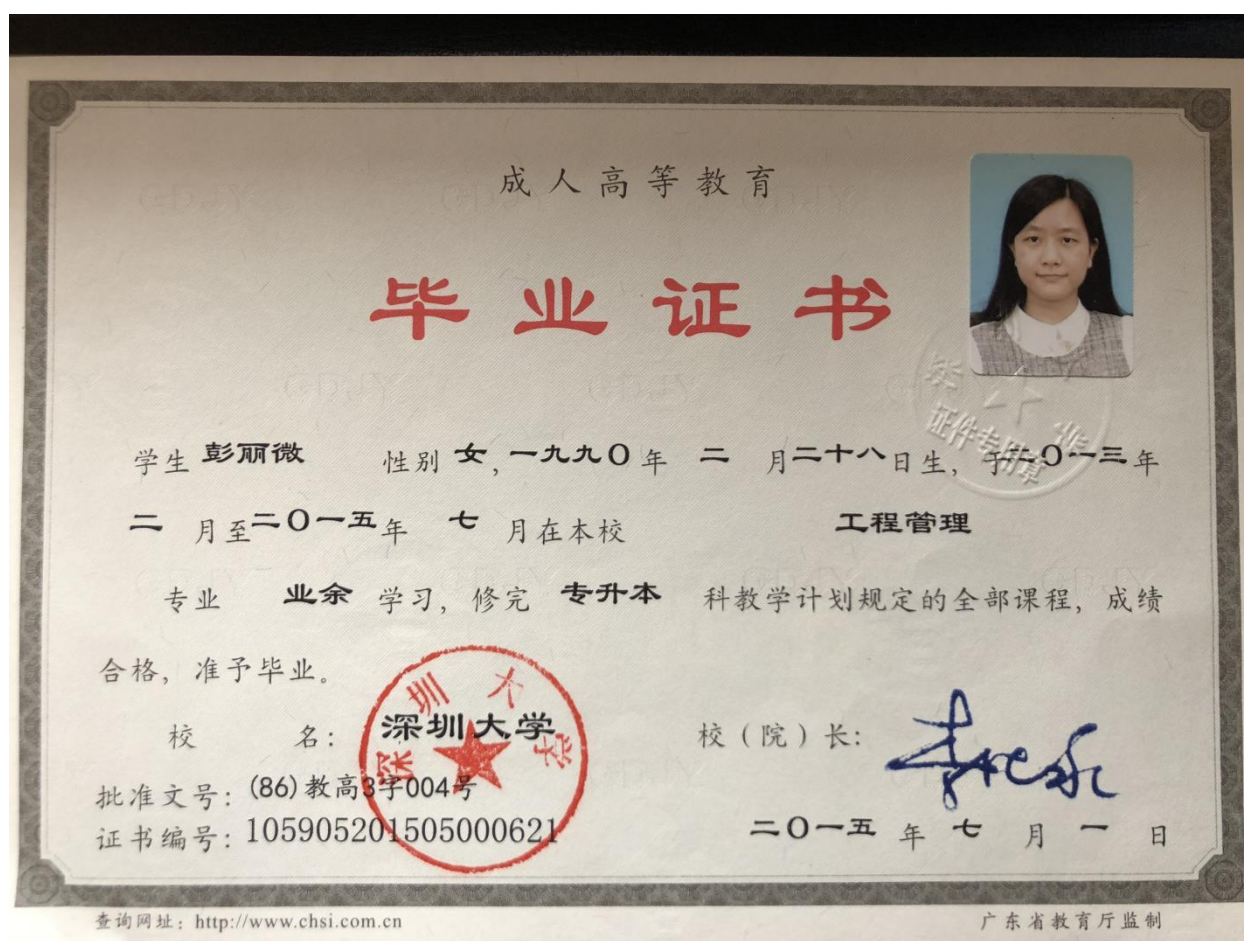 成人高等教育
毕业证书
学生 彭丽微 性别 女,一九九〇年 二 月二十八日生,于二〇一三年
二 月至二〇一五年 七 月在本校 工程管理
专业 业余 学习,修完 专升本 科教学计划规定的全部课程,成绩
合格,准予毕业。
校 名: 深圳大学 校(院)长:
批准文号:(86)教高3字004号
证书编号:105905201505000621 二〇一五 年 七 月 一 日
深圳大学
证件专用章
查询网址:http://www.chsi.com.cn 广东省教育厅监制